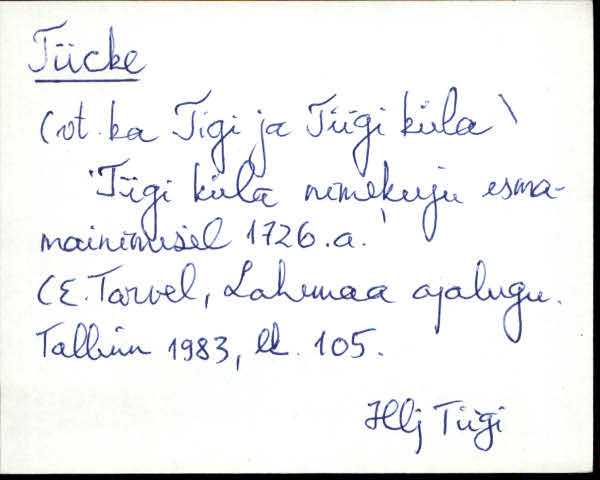 Tiicke
(vt. ka Tigi ja Tiigi küla)
'Tiigi küla nimekuju esma-
mainimisel 1726.a.'
(E. Tarvel, Lahemaa ajalugu.
Tallinn 1983, lk. 105.
Hlj Tiigi